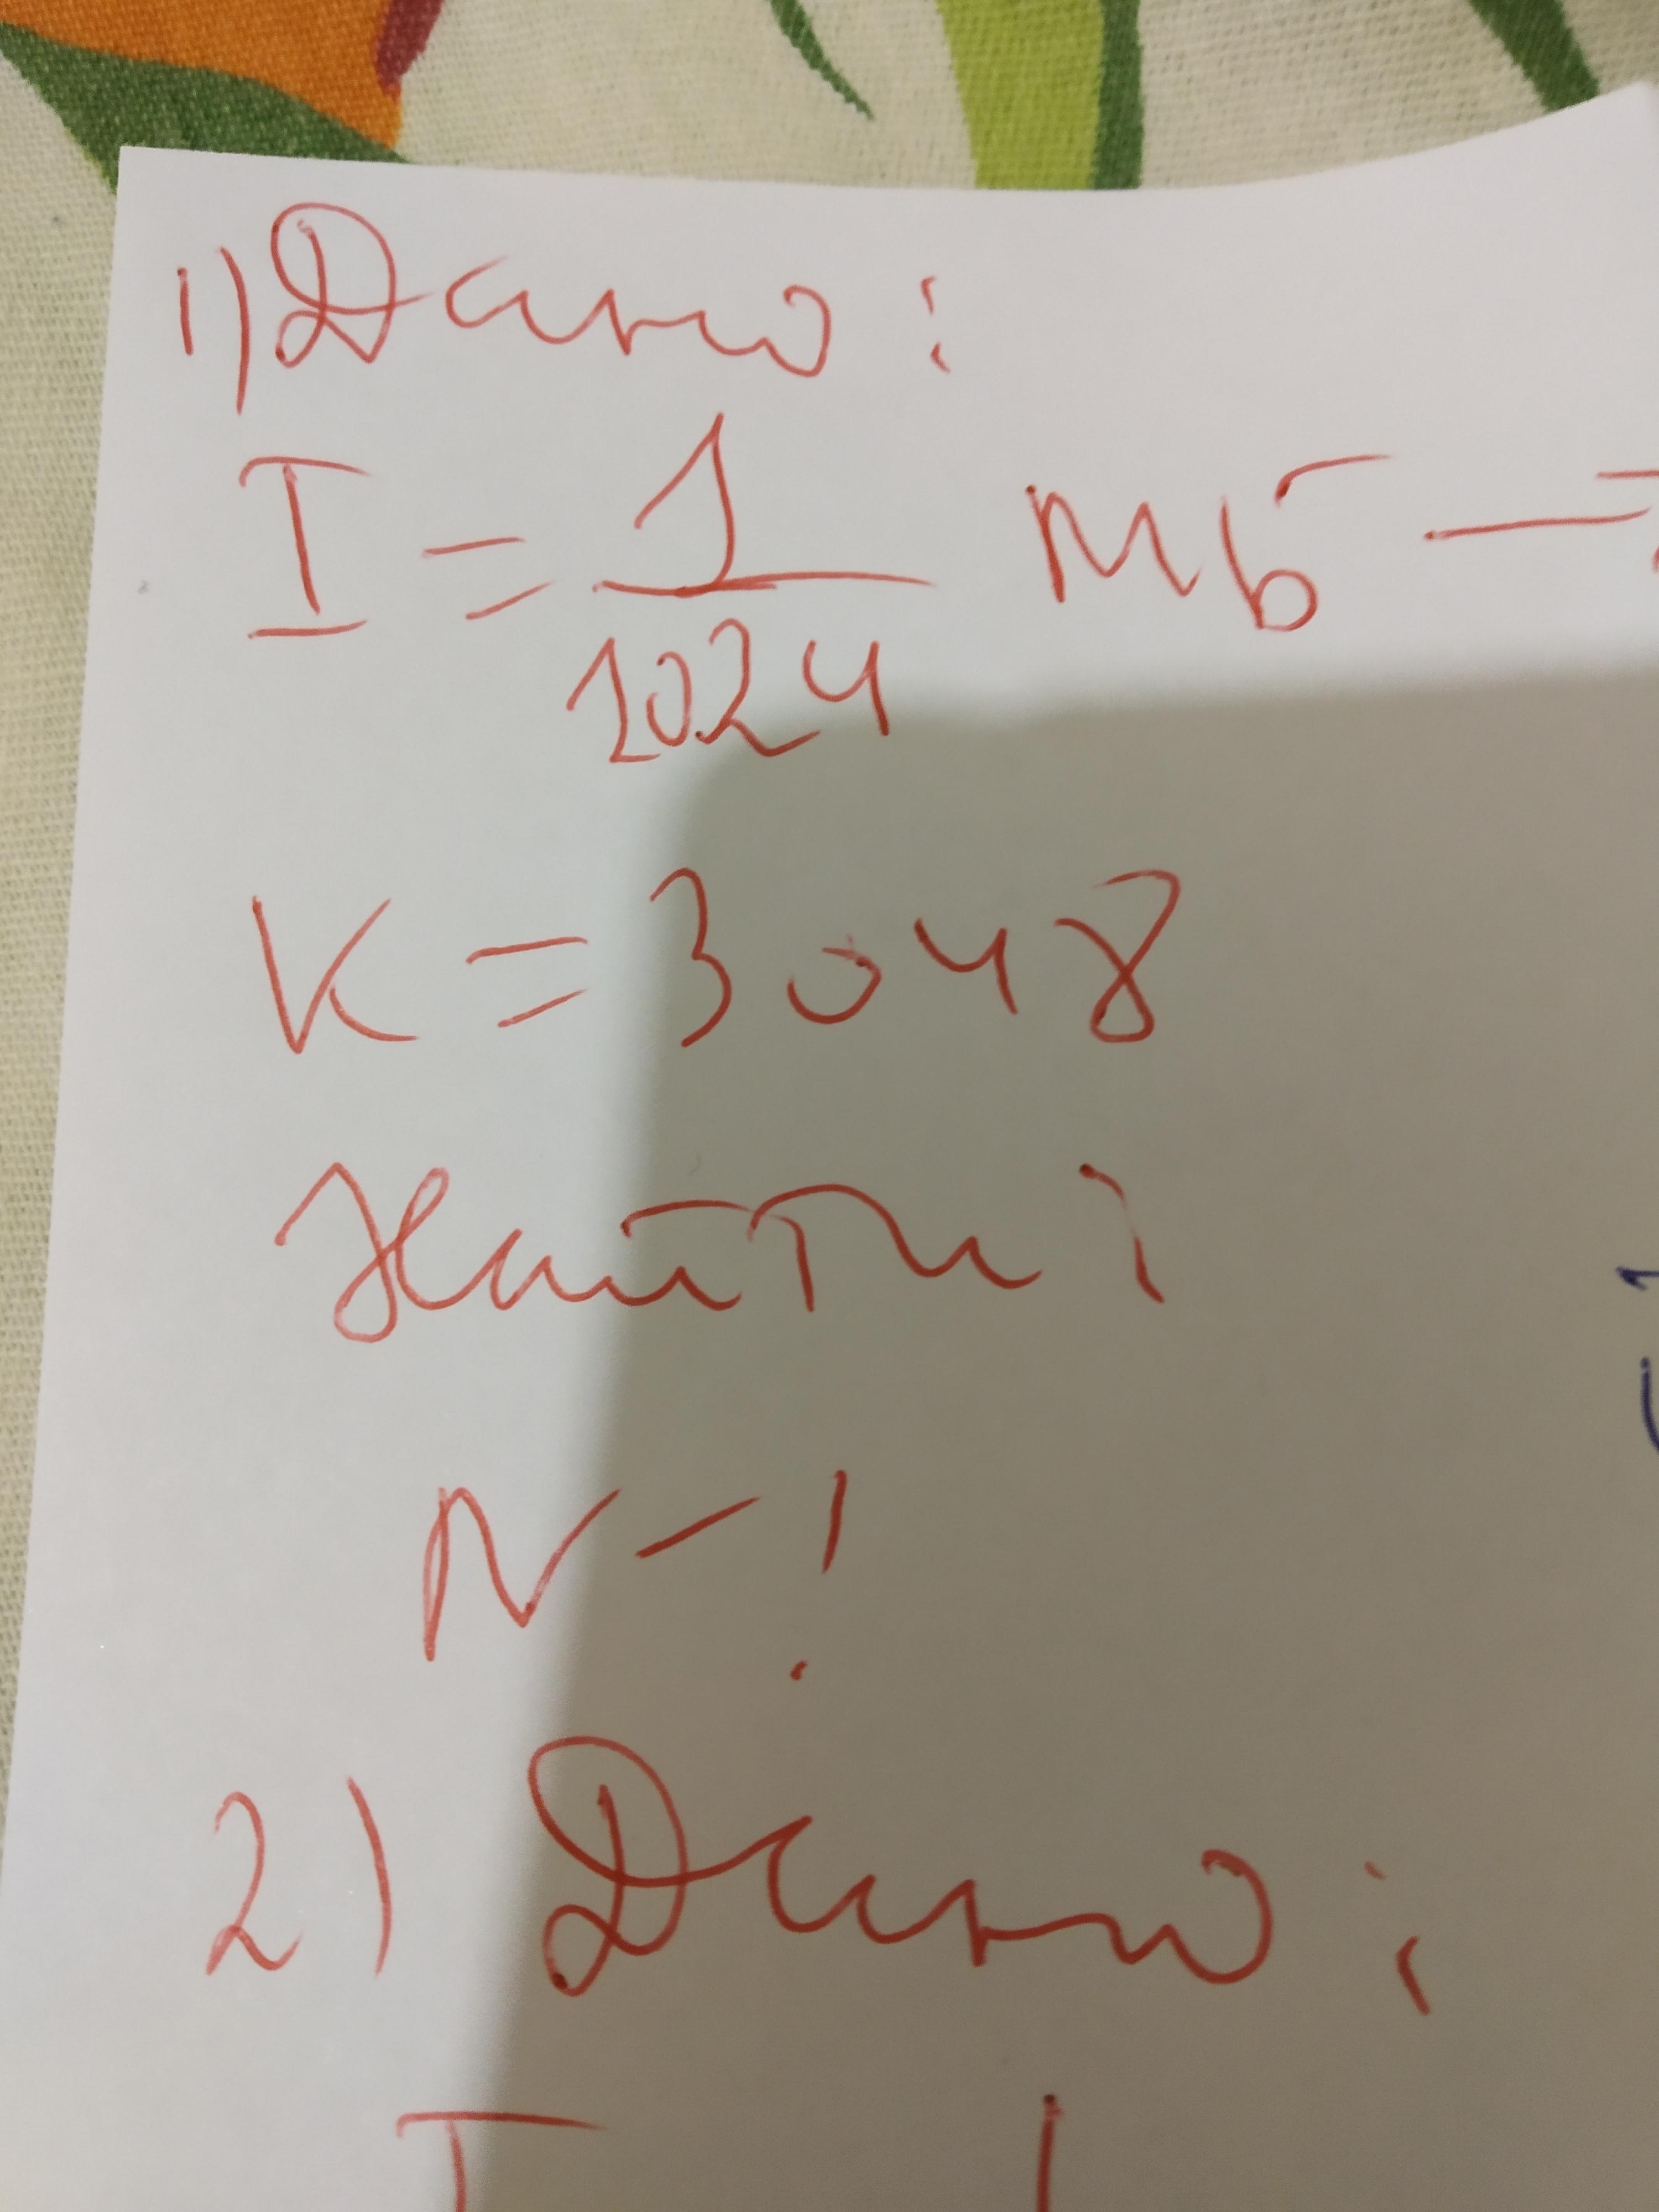 1) Дано:
I = 1/1024 Мб —
K = 3048
Найти:
N — !
2) Дано:
I